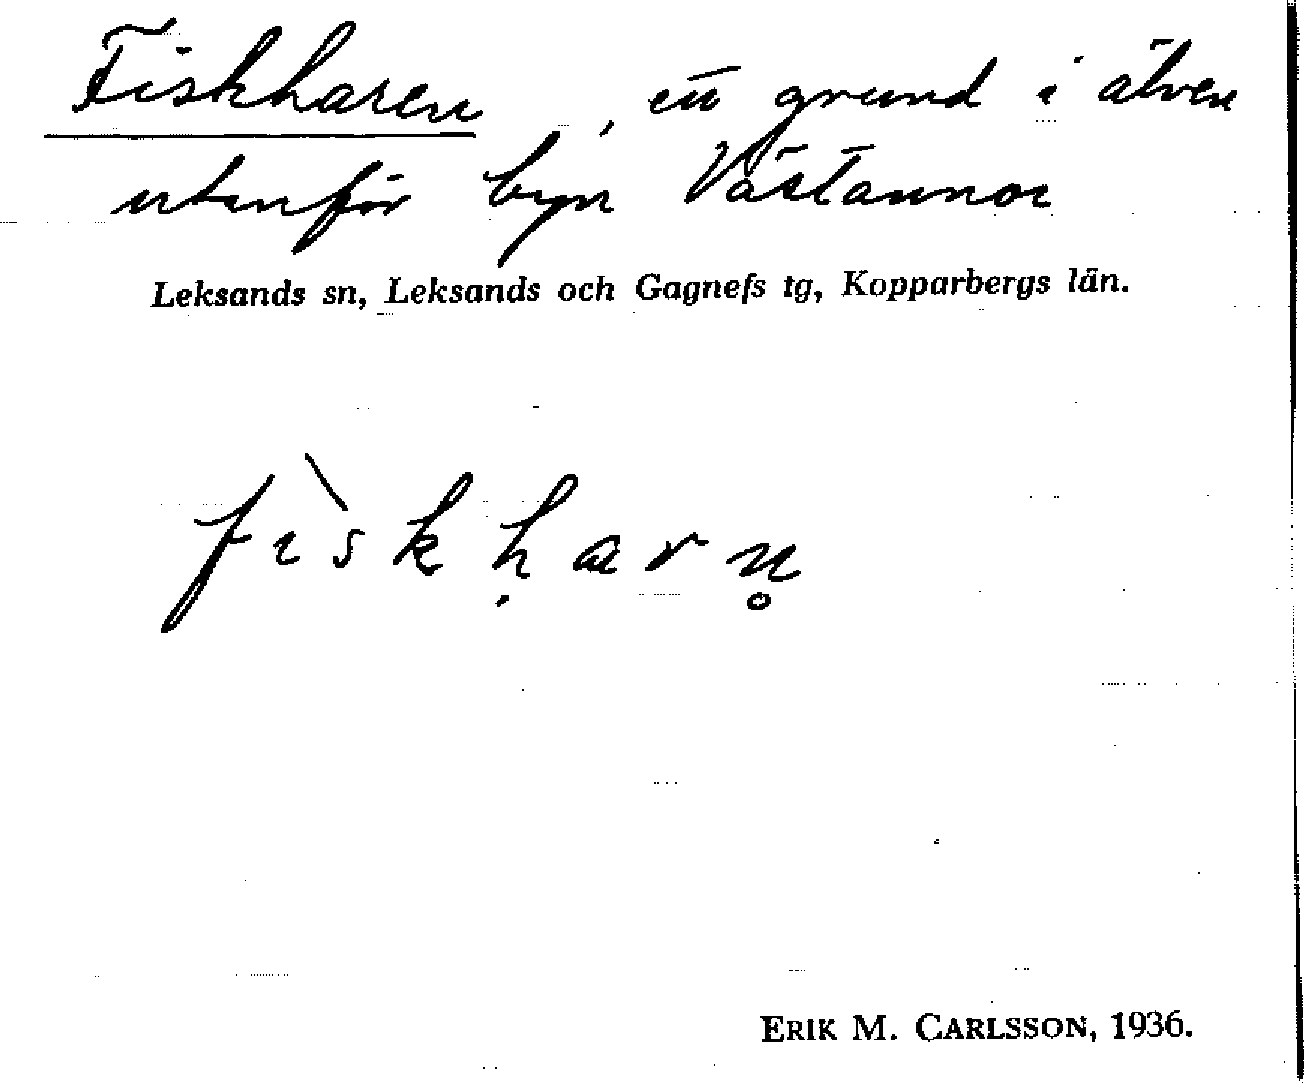 Fiskharen, ett grund i älven
utanför byn Västannor
Leksands sn, Leksands och Gagnefs tg, Kopparbergs län.
fìskḥarn̥
ERIK M. CARLSSON, 1936.